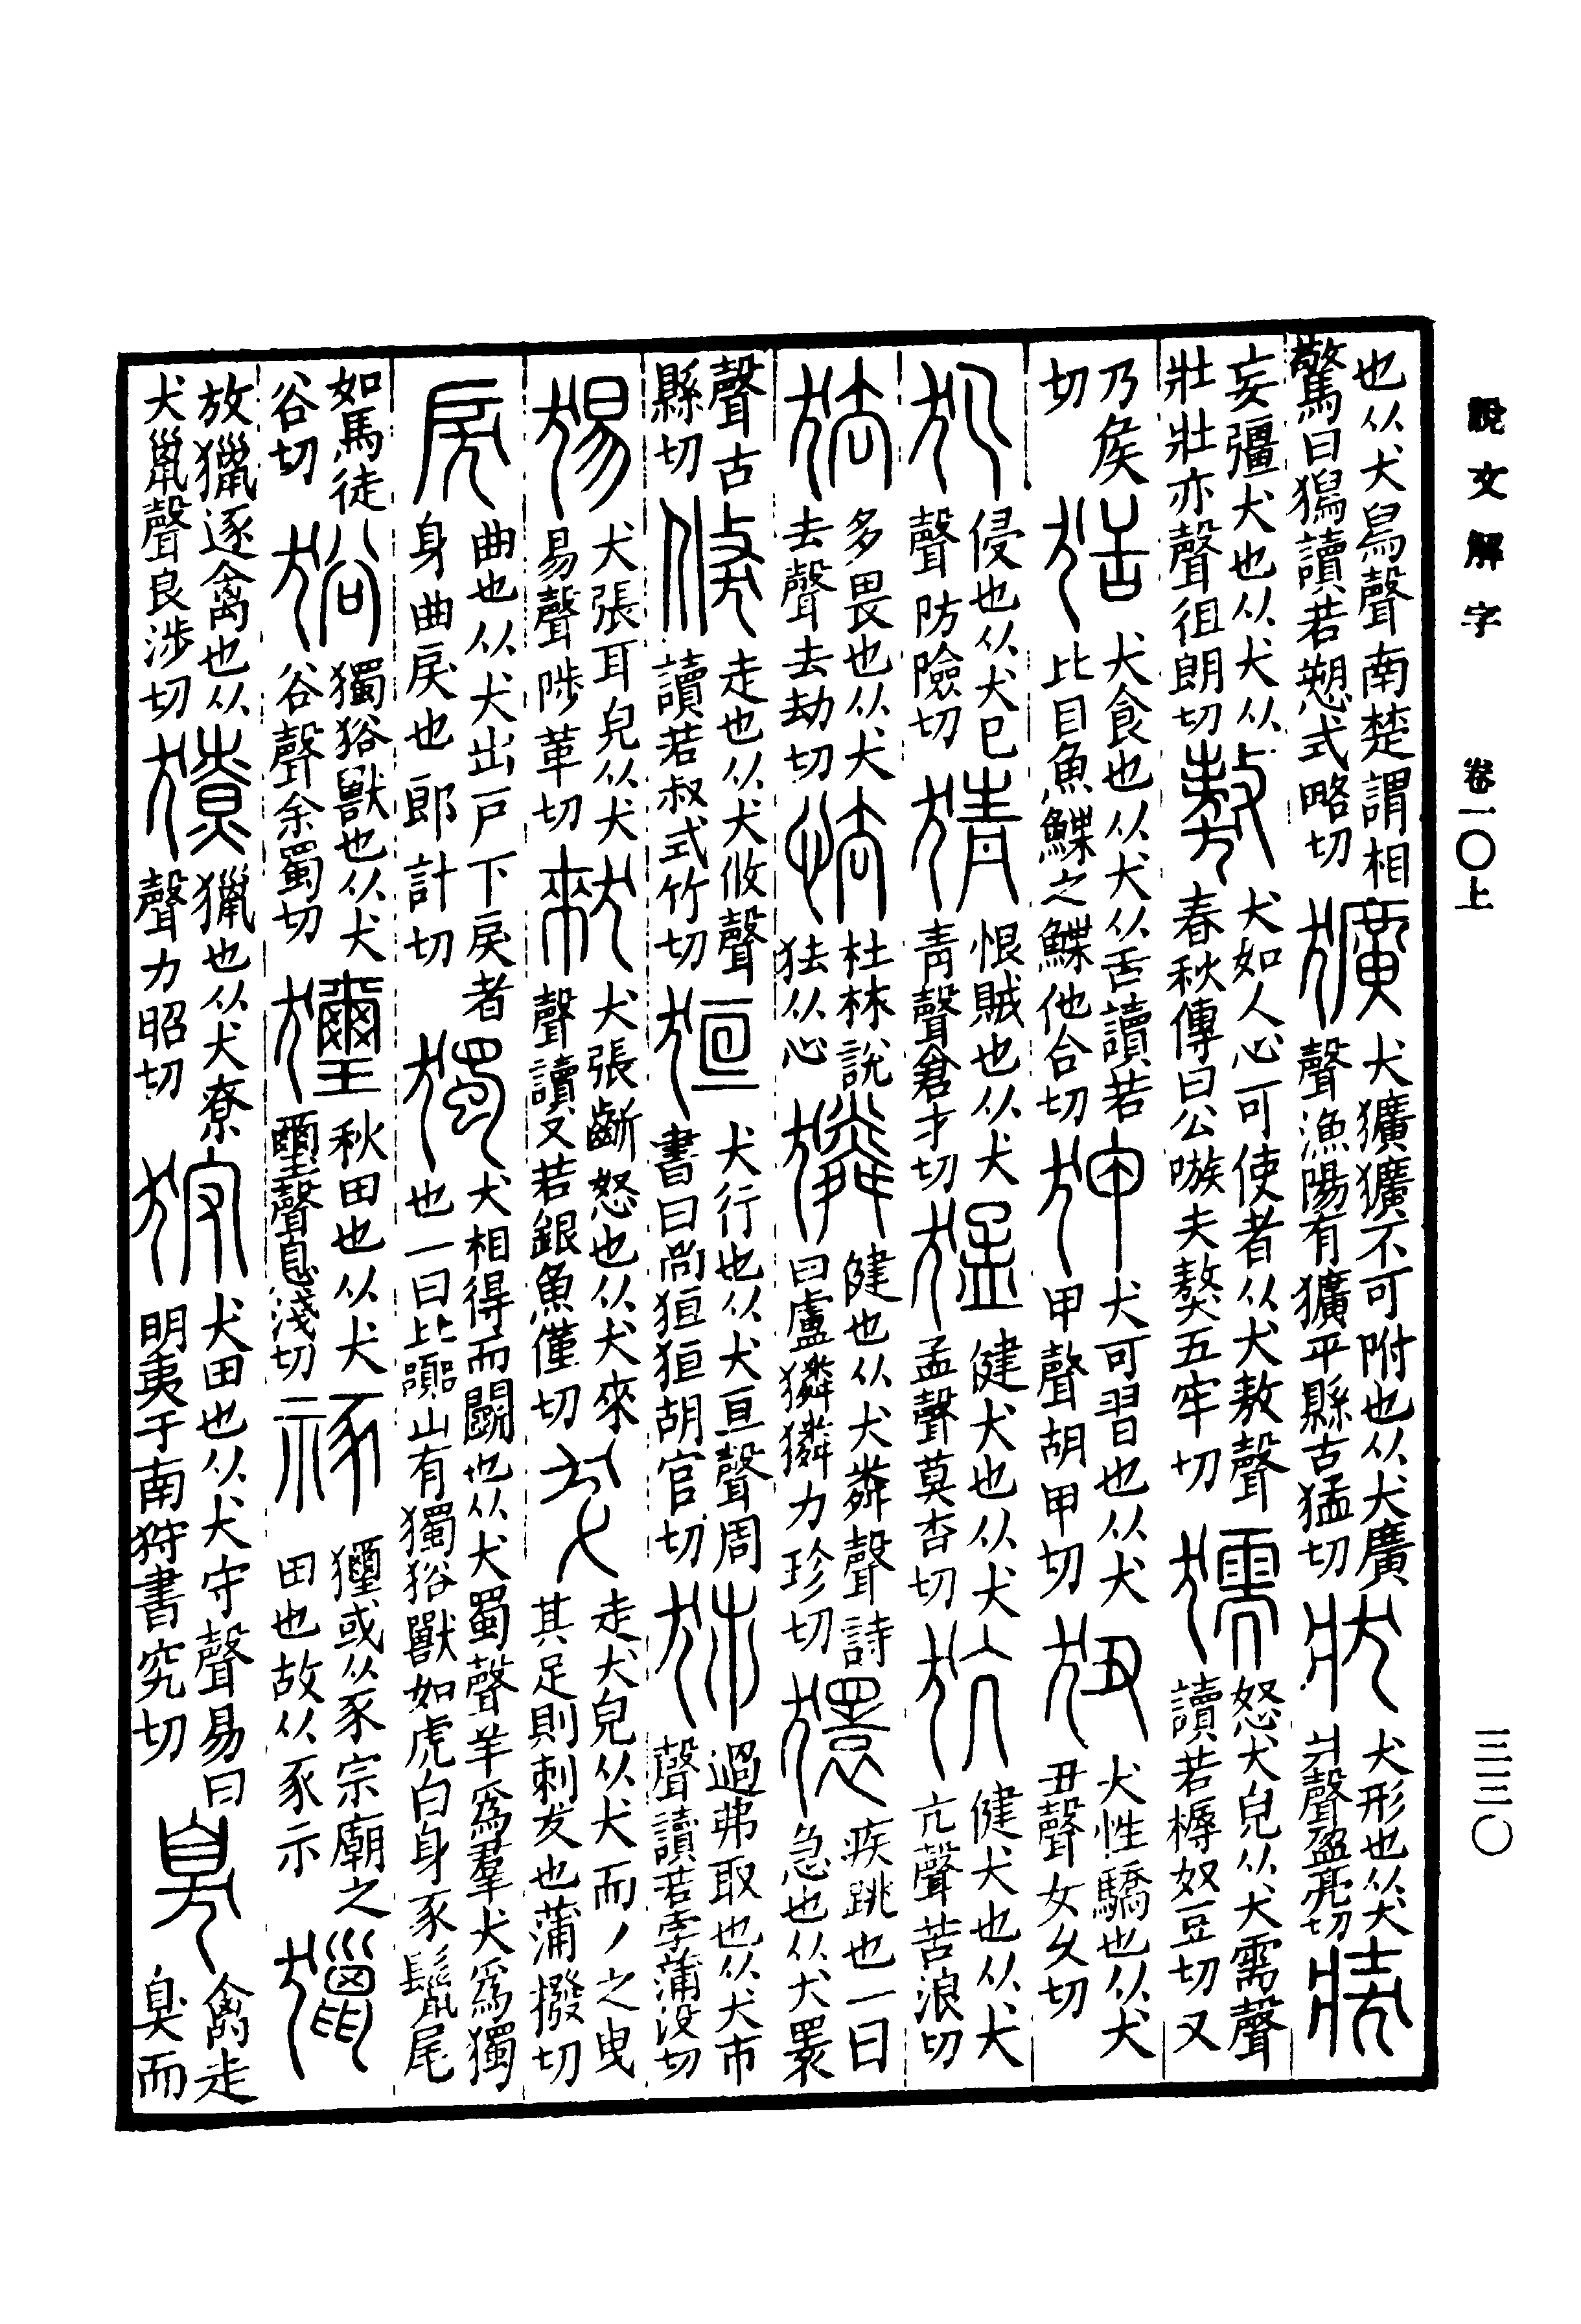 說文解字 卷一〇上 三三〇
也从犬舄聲南楚謂相驚曰獡讀若愬式略切 獷 犬獷獷不可附也从犬廣聲漁陽有獷平縣古猛切 狀 犬形也从犬爿聲盈亮切 奘
妄彊犬也从犬从壯壯亦聲徂朗切 獒 犬如人心可使者从犬敖聲春秋傳曰公嗾夫獒五牢切 獳 怒犬皃从犬需聲讀若槈奴豆切又
乃矦切 狧 犬食也从犬从舌讀若比目魚鰈之鰈他合切 狎 犬可習也从犬甲聲胡甲切 狃 犬性驕也从犬丑聲女久切
犯 侵也从犬㔾聲防險切 猜 恨賊也从犬青聲倉才切 猛 健犬也从犬孟聲莫杏切 犺 健犬也从犬亢聲苦浪切
㹤 多畏也从犬去聲去劫切 怯 杜林說㹤从心 獜 健也从犬粦聲詩曰盧獜獜力珍切 獧 疾跳也一曰急也从犬睘
聲古縣切 倏 走也从犬攸聲讀若叔式竹切 狟 犬行也从犬亘聲周書曰尚狟狟胡官切 㹀 過弗取也从犬巿聲讀若孛蒲没切
猲 犬張耳皃从犬易聲陟革切 猌 犬張齗怒也从犬來聲讀又若銀魚僅切 犮 走犬皃从犬而丿之曳其足則剌犮也蒲撥切
戾 曲也从犬出戶下戾者身曲戾也郎計切 獨 犬相得而鬭也从犬蜀聲羊爲羣犬爲獨也一曰北嚻山有獨𤞞獸如虎白身豕鬣尾
如馬徒谷切 𤞞 獨𤞞獸也从犬谷聲余蜀切 玃 秋田也从犬璽聲息淺切 𥘵 獮或从豕宗廟之田也故从豕示 獵
放獵逐禽也从犬巤聲良涉切 獠 獵也从犬尞聲力昭切 狩 犬田也从犬守聲易曰明夷于南狩書究切 臭 禽走臭而